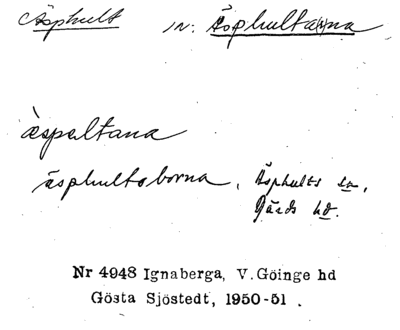 Äsphult in: Äsphulta(r)na
äspaltana
äsphultaborna, Äsphults sn,
Gärds hd.
Nr 4948 Ignaberga, V. Göinge hd
Gösta Sjöstedt, 1950-51.